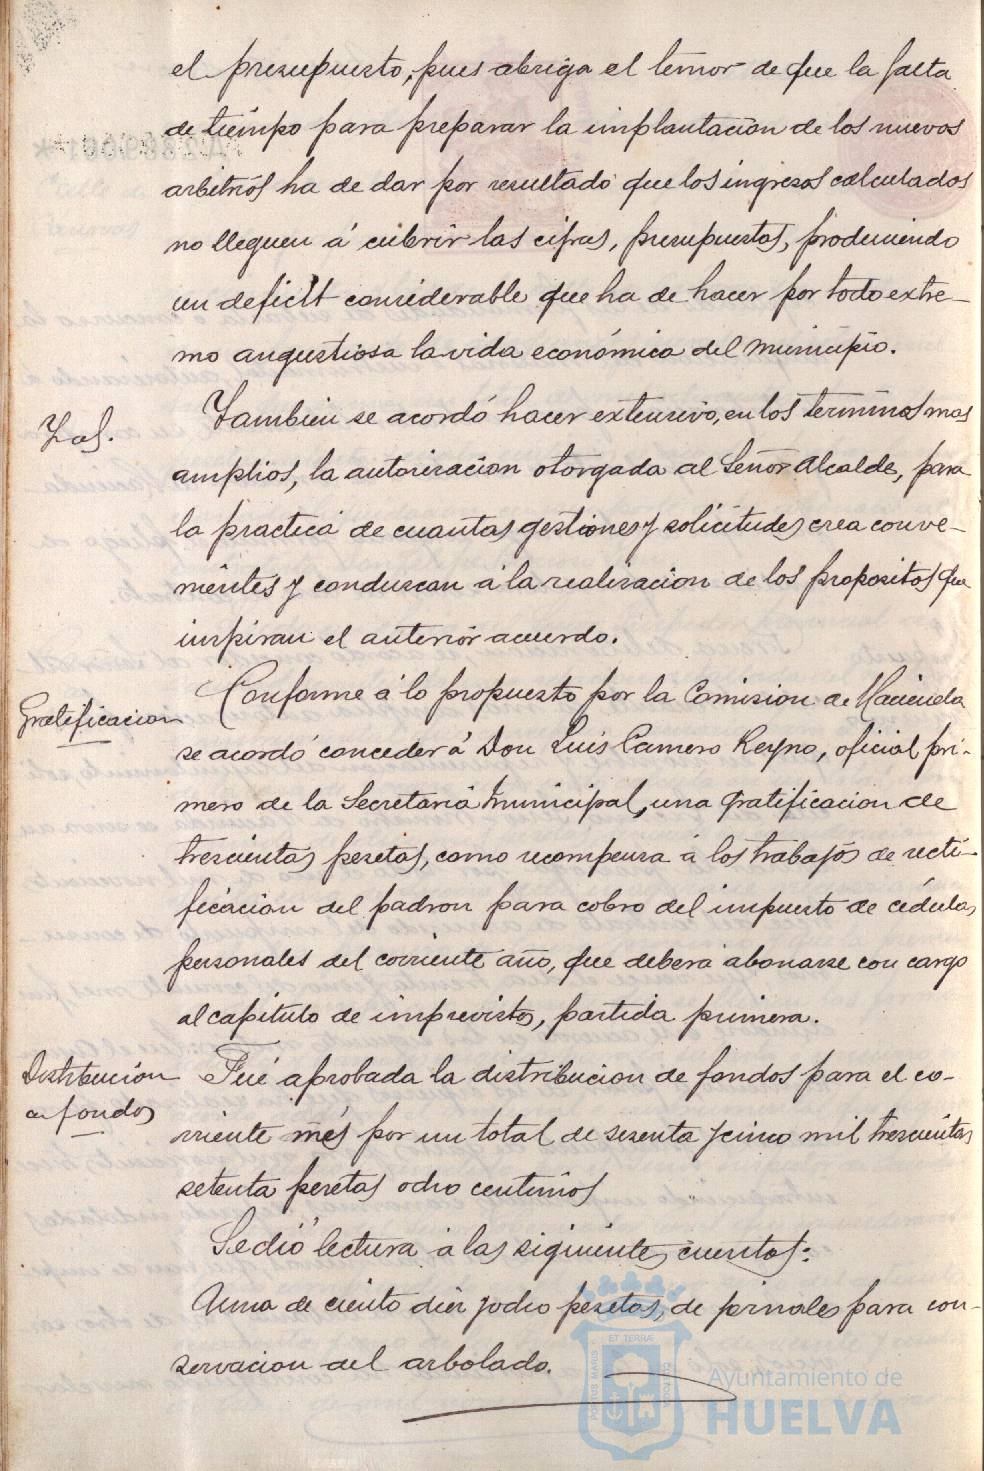 el presupuesto, pues abriga el temor de que la falta
de tiempo para preparar la implantacion de los nuevos
arbitrios ha de dar por resultado que los ingresos calculados
no lleguen á cubrir las cifras, presupuestas, produciendo
un deficit considerable que ha de hacer por todo extre-
mo angustiosa la vida económica del municipio.
Tambien se acordó hacer extensivo, en los terminos mas
amplios, la autorizacion otorgada al Señor Alcalde, para
la practica de cuantas gestiones y solicitudes crea conve-
nientes y conduzcan á la realizacion de los propositos que
inspiran el anterior acuerdo.
Gratificacion
Conforme á lo propuesto por la Comision de Hacienda
se acordó conceder á Don Luis Camero Reyno, oficial pri-
mero de la Secretaria municipal, una gratificacion de
trescientas pesetas, como recompensa á los trabajos de recti-
ficacion del padron para cobro del impuesto de cédulas
personales del corriente año, que deberá abonarse con cargo
al capitulo de imprevistos, partida primera.
Distribucion
de fondos
Fué aprobada la distribucion de fondos para el co-
rriente mes por un total de sesenta y cinco mil trescientas
setenta pesetas ocho centimos
Se dió lectura á las siguientes cuentas:
Una de ciento diez y ocho pesetas, de jornales para con-
servacion del arbolado.
ET TERRÆ
PORTUS MARIS
CUSTODIA
Ayuntamiento de
HUELVA